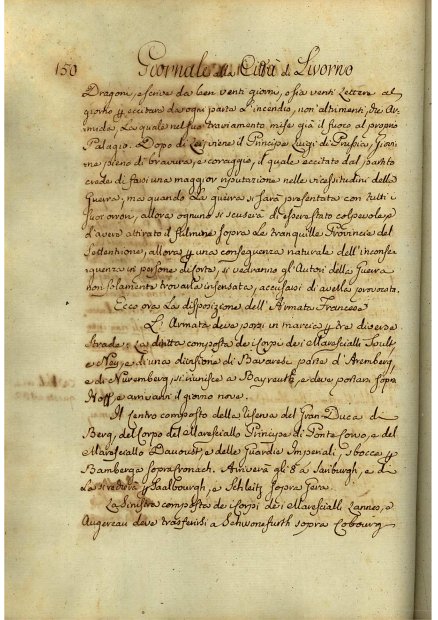 150 Giornale della Città di Livorno
Dragoni, e scrive da ben venti giorni, o sia venti Lettere al
giorno per eccitare da ogni parte all'incendio, non altrimenti, che Ar-
mida, La quale nel suo traviamento mise già il fuoco al proprio
Palagio. Dopo di Lei viene il Principe Luigi di Prussia, giovi-
ne pieno di bravura, e coraggio, il quale eccitato dal partito
crede di farsi una maggior riputazione nelle vicessitudini della
Guerra, ma quando La guerra si sarà presentata con tutti i
suoi orrori, allora ognuno si scuserà di essere stato colpevole, e
d'avere attirato il fulmine sopra le tranquille Provincie del
Settentrione, allora per una conseguenza naturale dell'inconse-
guenza in persone di Corte, si vedranno gli Autori della Guerra
non solamente trovarla insensata, accusarsi di averla provocata
Ecco ora La disposizione dell'Armata Francese
L'Armata deve porsi in marcia per tre diverse
strade: La diritta composta de' Corpi dei Marescialli Soult
e Ney, e di una divisione di Bavaresi parte d'Amberg,
e di Nuremberg, si riunisce a Bayreuth, e deve portarsi sopra
Hoff, e arrivarvi il giorno nove.
Il Centro composto della riserva del Gran-Duca di
Berg, del Corpo del Maresciallo Principe di Ponte Corvo, e del
Maresciallo Davoust, e delle Guardie Imperiali, sbocca per
Bamberga sopra Cronach. Arriverà gli 8 a Saalburgh, e di
La si recherà per Saalbourgh, e Schleitz sopra Gera.
La Sinistra composta de' Corpi dei Marescialli Lannes, e
Augereau deve trasferirsi a Schwenefurth sopra Cobourg